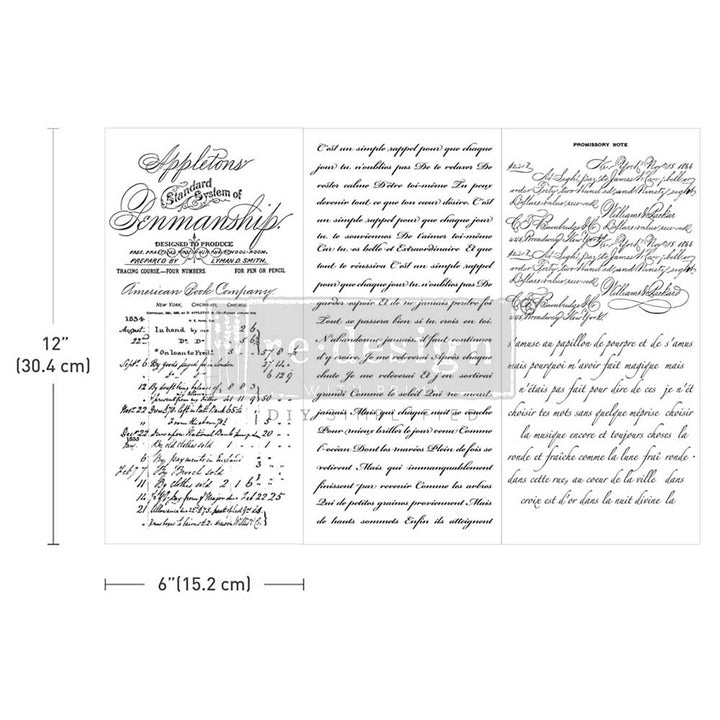 12"
(30.4 cm)
6"(15.2 cm)
Appletons'
Standard
System of
Penmanship.
DESIGNED TO PRODUCE
PREPARED BY LYMAN D. SMITH.
TRACING COURSE—FOUR NUMBERS. FOR PEN OR PENCIL
American Book Company
NEW YORK, CINCINNATI, CHICAGO
1834
August In hand by 2 6
22 Do Do
Sept. 6 By Goods
6 12 9
12
Novr. 22
Decr. 22
By old clothes sold
6 By payments in
Feb 7 By Brooch sold
11 By clothes sold 2 1 6
14 2 22 25
21
C'est un simple rappel pour que chaque
jour tu n'oublies pas De te relaxer De
rester calme D'être toi-même Tu peux
devenir tout ce que ton cœur désire. C'est
un simple rappel pour que chaque jour
tu te souviennes De t'aimer toi-même
Car tu es belle et Extraordinaire Et que
tout te réussira C'est un simple rappel
pour que chaque jour tu n'oublies pas De
garder espoir Et de ne jamais perdre foi
Tout se passera bien si tu crois en toi.
N'abandonne jamais il faut continuer
d'y croire Je me relèverai Après chaque
chute Je me relèverai Et en sortirai
grandi Comme le soleil Qui ne meurt
jamais Mais qui chaque nuit se couche
Pour mieux briller le jour venu Comme
l'océan Dont les marées Plein de fois se
retirent Mais qui immanquablement
finissent par revenir Comme les arbres
Qui de petites graines proviennent Mais
de hauts sommets Enfin ils atteignent
PROMISSORY NOTE
New York, Nov 25 1864
At Sight, pay to James W Carr, bell, or
order Forty-two Hundred, and Ninety eight
Dollars, value received
Williams & Packard
C. F. Bainbridge & Co
Broadway New York
New York, Nov 25 1864
At Sight, pay to James W Carr, bell, or
order Forty-two Hundred, and Ninety eight
Dollars, value received
Williams & Packard
C. F. Bainbridge & Co
Broadway, New York
s'amuse au papillon de pourpre et de s'amus
mais pourquoi m'avoir fait magique mais
n'étais pas fait pour dire de ces je n'ét
choisir tes mots sans quelque méprise choisir
la musique encore et toujours choses la
ronde et fraîche comme la lune fraî ronde
dans cette rue, au cœur de la ville dans
croix est d'or dans la nuit divine la
re·design
WITH PRIMA
DIY SIMPLIFIED